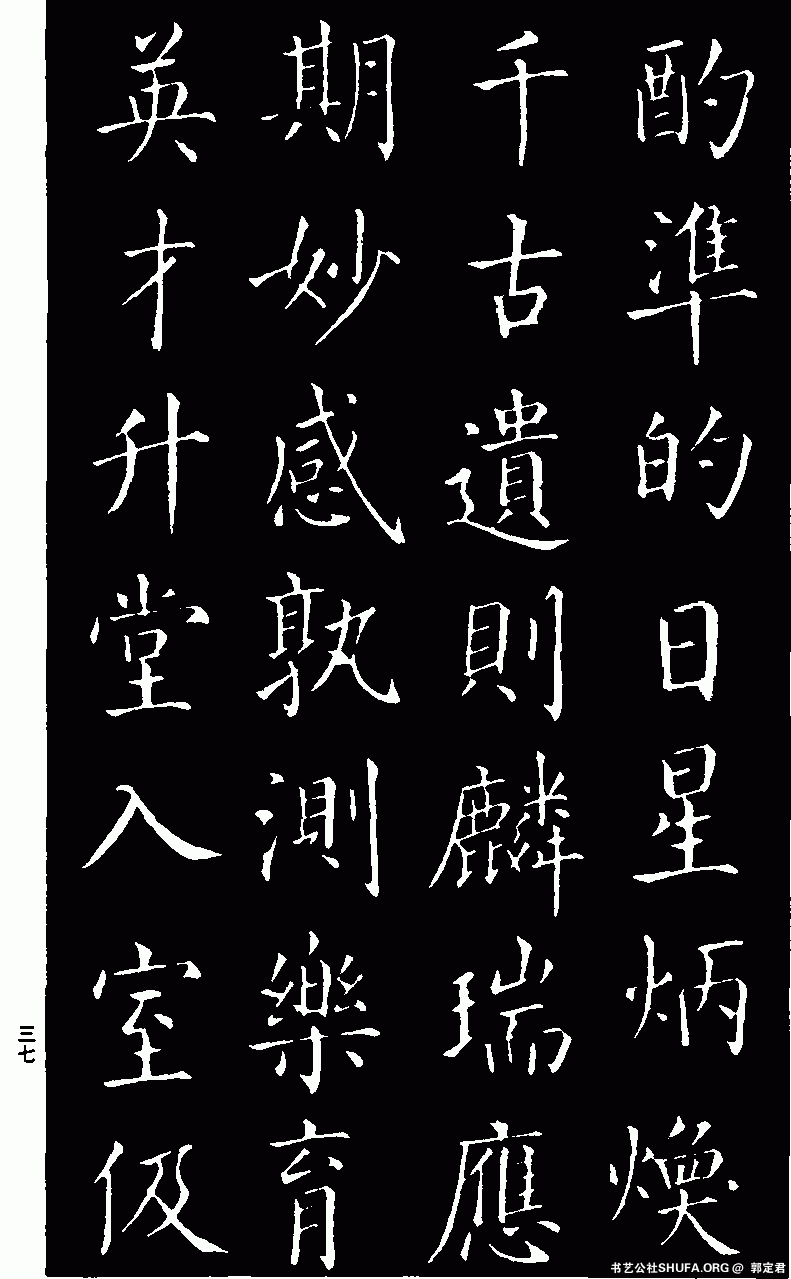 酌準的日星炳煥
千古遺則麟瑞應
期妙感孰測樂育
英才升堂入室伋
三七
书艺公社SHUFA.ORG @ 郭定君